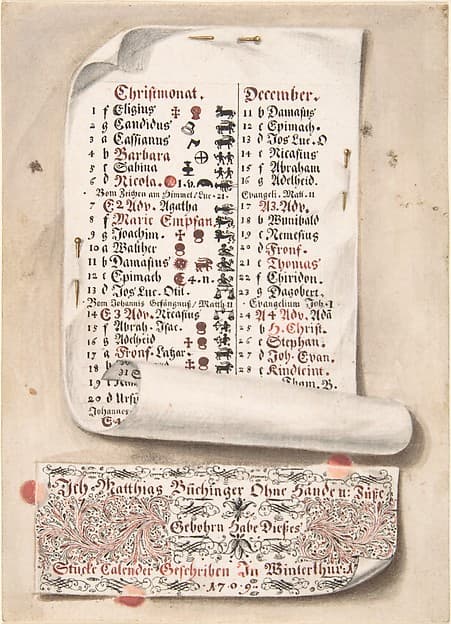 Christmonat.
1 f Eligius
2 g Candidus
3 a Cassianus
4 b Barbara
5 c Sabina
6 d Nicola. 1. v.
Vom Zeichen am Himmel/Luc. 21.
7 E2 Adv. Agatha
8 f Marie Empfan
9 g Joachim.
10 a Walther
11 b Damasus
12 c Epimach 4. n.
13 d Jos Luc. Otil.
Vom Johannis Gefängnuß/Matth. 11
14 E3 Adv. Nicasius
15 f Abrah. Isac.
16 g Adelheid
17 a Fronf. Lazar.
18
19
20 d Ursy
Johannes
December.
11 b Damasus
12 c Epimach.
13 d Jos Luc. O
14 e Nicasius
15 f Abraham
16 g Adelheid.
Evangeli. Mat. 11
17 A3. Adv.
18 b Wunibald
19 c Nemesius
20 d Fronf.
21 e Thomas
22 f Chiridon.
23 g Dagobert.
Evangelium Joh. 1
24 A4 Adv. Ada
25 b H. Christ.
26 c Stephan.
27 d Joh. Evan.
28 e Kindleint.
Tham. B.
Ich Matthias Büchinger Ohne Handen: Füße
Gebohrn Habe Dießes
Stücke Calender Geschriben In Winterthur. A
1709